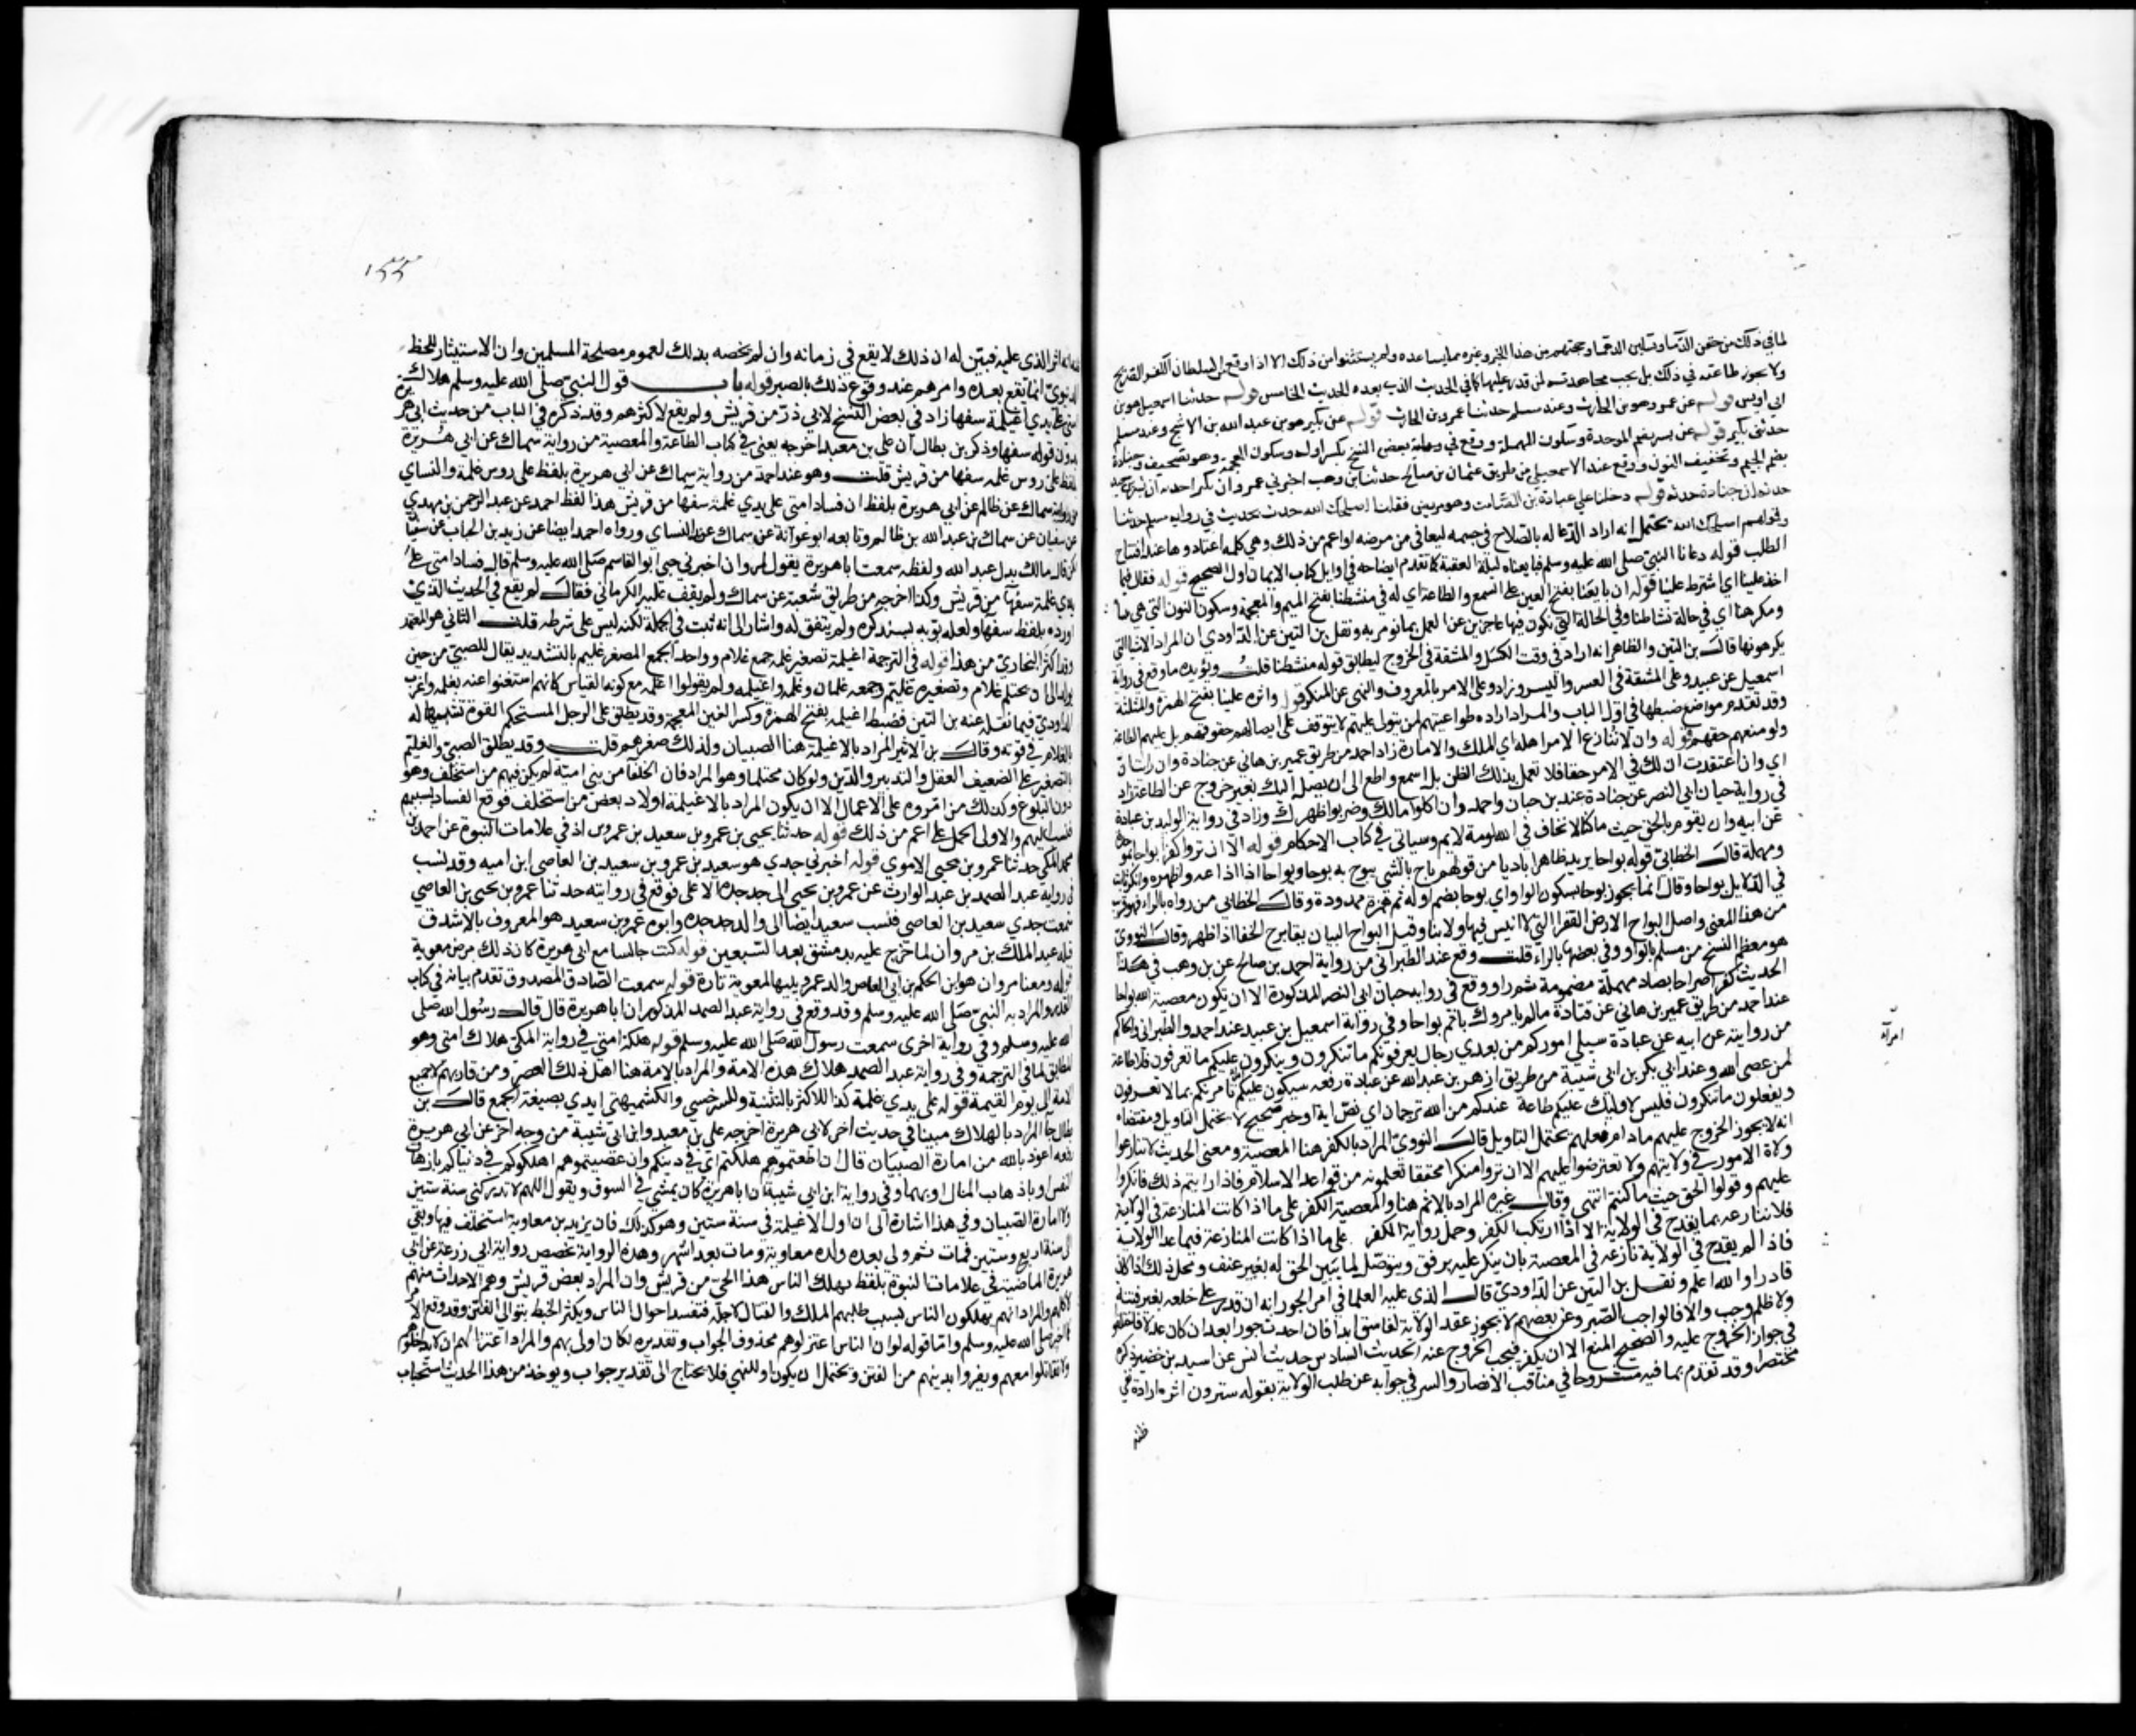 لما في ذلك من حقن الدما وتسكين الدهما وحجتهم من هذا الخبر وغيره مما يساعده ولم يستثنوا من ذلك الا اذا وقع من السلطان الكفر الصريح
ولا يجوز طاعته في ذلك بل يجب مجاهدته لمن قدر عليها كما في الحديث الذي بعده الحديث الخامس قوله حدثنا اسمعيل هو بن
ابي اويس قوله عن عمرو هو بن الحارث وعند مسلم حدثنا عمرو بن الحارث قوله عن بكير هو بن عبد الله بن الاشج وعند مسلم
حدثني بكير قوله عن بسر بضم الموحدة وسكون المهملة ووقع في بعض النسخ بكسر اوله وسكون المعجمة وهو تصحيف وجنادة
بضم الجيم وتخفيف النون ووقع عند الاسمعيلي من طريق عثمان بن صالح حدثنا بن وهب اخبرني عمرو ان بكيرا حدثه ان بسر بن سعيد
حدثه ان جنادة حدثه قوله دخلنا على عبادة بن الصامت وهو مريض فقلنا اصلحك الله حدث بحديث في رواية مسلم حدثنا
وقولهم اصلحك الله يحتمل انه اراد الدعا له بالصلاح في جسمه ليعافى من مرضه او اعم من ذلك وهي كلمة اعتادوها عند افتتاح
الطلب قوله دعانا النبي صلى الله عليه وسلم فبايعناه ليلة العقبة كما تقدم ايضاحه في اوايل كتاب الايمان اول الصحيح قوله فقال فيما
اخذ علينا اي اشترط علينا قوله ان بايعنا بفتح العين على السمع والطاعة اي له في منشطنا بفتح الميم والمعجمة وسكون النون التي هي
ومكرهنا اي في حالة نشاطنا وفي الحالة التي نكون فيها عاجزين عن العمل بما نومر به ونقل بن التين عن الداودي ان المراد الاشيا التي
يكرهونها قال بن التين والظاهر انه اراد في وقت الكسل والمشقة في الخروج ليطابق قوله منشطنا قلت ويؤيده ما وقع في رواية
اسمعيل بن عبيد وعلى المشقة في العسر واليسر وزاد وعلى الامر بالمعروف والنهي عن المنكر قوله واثرة علينا بفتح الهمزة والمثلثة
وقد تقدم مواضع ضبطها في اول الباب والمراد اراده طواعيتهم لمن يتولى عليهم لا يتوقف على ايصالهم حقوقهم بل عليهم الطاعة
ولو منعهم حقهم قوله وان لا ننازع الامر اهله اي الملك والامارة زاد احمد من طريق عمير بن هاني عن جنادة وان رايت ان
اي وان اعتقدت ان لك في الامر حقا فلا تعمل بذلك الظن بل اسمع واطع الى ان يصل اليك بغير خروج عن الطاعة زاد
في رواية حيان ابي النضر عن جنادة عند بن حبان واحمد وان اكلوا مالك وضربوا ظهرك وزاد في رواية الوليد بن عبادة
عن ابيه وان يقوم بالحق حيث ما كنا لا نخاف في الله لومة لايم وسياتي في كتاب الاحكام قوله الا ان تروا كفرا بواحا بموحدة
ومهملة قال الخطابي قوله بواحا يريد ظاهرا باديا من قولهم باح بالشي يبوح به بوحا وبواحا اذا اذاعه واظهره وانكر ثابت
في الدلايل بواحا وقال انما يجوز بوحا بسكون الواو او بوحا بضم اوله ثم همزة ممدودة وقال الخطابي من رواه بالرا فهو قريب
من هذا المعنى واصل البواح الارض القفرا التي لا انيس فيها ولا بنا وقيل البواح البيان يقال برح الخفا اذا ظهر وقال النووي
هو معظم النسخ من مسلم بالواو وفي بعضها بالرا قلت وقع عند الطبراني من رواية احمد بن صالح عن بن وهب في هذا
الحديث كفرا صراحا بصاد مهملة مضمومة ثم را ووقع في رواية حبان ابي النضر المذكورة الا ان تكون معصية الله بواحا
عند احمد من طريق عمير بن هاني عن جنادة ما لم يامروك باثم بواحا وفي رواية اسمعيل بن عبيد عند احمد والطبراني والحاكم
من روايته عن ابيه عن عبادة سيلي اموركم من بعدي رجال يعرفونكم ما تنكرون وينكرون عليكم ما تعرفون فلا طاعة
لمن عصى الله وعند ابي بكر بن ابي شيبة من طريق ازهر بن عبد الله عن عبادة رفعه سيكون عليكم امرا يامرنكم بما لا تعرفون
امرآء
ويفعلون ما تنكرون فليس لاوليك عليكم طاعة عندكم من الله ترجمان اي نص اية او خبر صحيح لا يحتمل التاويل ومقتضاه
انه لا يجوز الخروج عليهم ما دام فعلهم يحتمل التاويل قال النووي المراد بالكفر هنا المعصية ومعنى الحديث لا تنازعوا
ولاة الامور في ولايتهم ولا تعترضوا عليهم الا ان تروا منكرا محققا تعلمونه من قواعد الاسلام فاذا رايتم ذلك فانكروا
عليهم وقولوا الحق حيث ما كنتم انتهى وقال غيره المراد بالاثم هنا والمعصية الكفر على ما اذا كانت المنازعة في الولاية
فلا ننازعه بما يقدح في الولاية الا اذا ارتكب الكفر وحمل رواية الكفر على ما اذا كانت المنازعة فيما عدا الولاية
فاذا لم يقدح في الولاية نازعه في المعصية بان ينكر عليه برفق ويتوصل لما تبين الحق له بغير عنف ومحل ذلك اذا كان
قادرا والله اعلم ونقل بن التين عن الداودي قال الذي عليه العلما في امر الجور انه ان قدر على خلعه بغير فتنة
ولا ظلم وجب والا فالواجب الصبر وعن بعضهم لا يجوز عقد الولاية لفاسق ابدا فان احدث جورا بعد ان كان عدلا فاختلفوا
في جواز الخروج عليه والصحيح المنع الا ان يكفر فيجب الخروج عنه الحديث السادس حديث انس عن اسيد بن حضير ذكره
مختصرا وقد تقدم بما فيه مشروحا في مناقب الانصار والسر في جوابه عن طلب الولاية بقوله سترون اثرة ارادة نفي
ظنه
١٥٥
انه اثر الذي عليه فبين له ان ذلك لا يقع في زمانه وان لم يخصه بذلك لعموم مصلحة المسلمين وان الاستيثار للحظ
الدنيوي انما يقع بعده وامرهم عند وقوع ذلك بالصبر قوله باب قول النبي صلى الله عليه وسلم هلاك
امتي على يدي اغيلمة سفها زاد في بعض النسخ لابي ذر من قريش ولم يقع لاكثرهم وقد ذكره في الباب من حديث ابي هريرة
بدون قوله سفها وذكر بن بطال ان علي بن معبد اخرجه يعني في كتاب الطاعة والمعصية من رواية سماك عن ابي هريرة
بلفظ على روس غلمة سفها من قريش قلت وهو عند احمد من رواية سماك عن ابي هريرة بلفظ على روس غلمة والنساي
من رواية سماك عن ظالم عن ابي هريرة بلفظ ان فساد امتي على يدي غلمة سفها من قريش هذا لفظ احمد عن عبد الرحمن بن مهدي
عن سفيان عن سماك بن عبد الله بن ظالم وتابعه ابو عوانة عن سماك عند النساي ورواه احمد ايضا عن زيد بن الحباب عن سفيان
لكن قال مالك بدل عبد الله ولفظه سمعت ابا هريرة يقول لمروان اخبرني حبي ابو القاسم صلى الله عليه وسلم قال فساد امتي على
يدي غلمة سفها من قريش وكذا اخرجه من طريق شعبة عن سماك ولم يقف عليه الكرماني فقال لم يقع في الحديث الذي
اورده بلفظ سفها ولعله بوب به ليستدركه ولم يتفق له واشار الى انه ثبت في الجملة لكنه ليس على شرطه قلت الثاني هو المعتمد
وقد اكثر البخاري من هذا قوله في الترجمة اغيلمة تصغير غلمة جمع غلام وواحد الجمع المصغر غليم بالتشديد يقال للصبي من حين
يولد الى ان يحتلم غلام وتصغيره غليم وجمعه غلمان وغلمة واغيلمة ولم يقولوا اغلمة مع كونه القياس كانهم استغنوا عنه بغلمة واغرب
الداودي فيما نقله عنه بن التين فضبط اغيلمة بفتح الهمزة وكسر الغين المعجمة وقد يطلق على الرجل المستحكم القوة تشبيها له
بالغلام في قوته وقال بن الاثير المراد بالاغيلمة هنا الصبيان ولذلك صغرهم قلت وقد يطلق الصبي والغليم
بالتصغير على الضعيف العقل والتدبير والدين ولو كان محتلما وهو المراد فان الخلفا من بني امية لم يكن فيهم من استخلف وهو
دون البلوغ وكذلك من امروه على الاعمال الا ان يكون المراد بالاغيلمة اولاد بعض من استخلف فوقع الفساد بسببهم
فنسب اليهم والاولى الحمل على اعم من ذلك قوله حدثنا يحيى بن عمرو بن سعيد بن عمرو اذ في علامات النبوة عن احمد بن
محمد المكي حدثنا عمرو بن يحيى الاموي قوله اخبرني جدي هو سعيد بن عمرو بن سعيد بن العاصي ابن اميه وقد نسب
في رواية عبد الصمد بن عبد الوارث عن عمرو بن يحيى الى جد جده الاعلى فوقع في روايته حدثنا عمرو بن يحيى بن العاصي
سمعت جدي سعيد بن العاصي فنسب سعيد ايضا الى والد جد جده وابوه عمرو بن سعيد هو المعروف بالاشدق
قتله عبد الملك بن مروان لما خرج عليه بدمشق بعد السبعين قوله كنت جالسا مع ابي هريرة كان ذلك من معوية
قوله ومعنا مروان هو ابن الحكم بن ابي العاص والد عمرو يليها لمعوية تارة قوله سمعت الصادق المصدوق تقدم بيانه في كتاب
القدر والمراد به النبي صلى الله عليه وسلم وقد وقع في رواية عبد الصمد المذكور ان ابا هريرة قال قال رسول الله صلى
الله عليه وسلم وفي رواية اخرى سمعت رسول الله صلى الله عليه وسلم قوله هلكة امتي في رواية المكي هلاك امتي وهو
المطابق لما في الترجمه وفي رواية عبد الصمد هلاك هذه الامة والمراد بالامة هنا اهل ذلك العصر ومن قاربهم لا جميع
الامة الى يوم القيمة قوله على يدي غلمة كذا للاكثر بالتثنية وللسرخسي والكشميهني ايدي بصيغة الجمع قال بن
بطال جا المراد بالهلاك مبينا في حديث اخر لابي هريرة اخرجه علي بن معبد وابن ابي شيبة من وجه اخر عن ابي هريرة
رفعه اعوذ بالله من امارة الصبيان قال ان اطعتموهم هلكتم اي في دينكم وان عصيتموهم اهلكوكم في دنياكم بازهاق
النفس او باذهاب المال او بهما وفي رواية ابن ابي شيبة ان ابا هريرة كان يمشي في السوق ويقول اللهم لا تدركني سنة ستين
ولا امارة الصبيان وفي هذا اشارة الى ان اول الاغيلمة في سنة ستين وهو كذلك فان يزيد بن معاوية استخلف فيها وبقي
الى سنة اربع وستين فمات ثم ولي بعده ولده معاوية ومات بعد اشهر وهذه الرواية تخصص رواية ابي زرعة عن ابي
هريرة الماضية في علامات النبوة بلفظ يهلك الناس هذا الحي من قريش وان المراد بعض قريش وهم الاحداث منهم
لا كلهم والمراد انهم يهلكون الناس بسبب طلبهم الملك والقتال لاجله فتفسد احوال الناس ويكثر الخبط بتوالي الفتن وقد وقع الامر
كما اخبر صلى الله عليه وسلم واما قوله لو ان الناس اعتزلوهم محذوف الجواب وتقديره لكان اولى بهم والمراد اعتزالهم ان لا يداخلوهم
ولا يقاتلوا معهم ويفروا بدينهم من الفتن ويحتمل ان يكون لو للتمني فلا يحتاج الى تقدير جواب ويوخذ من هذا الحديث استحباب